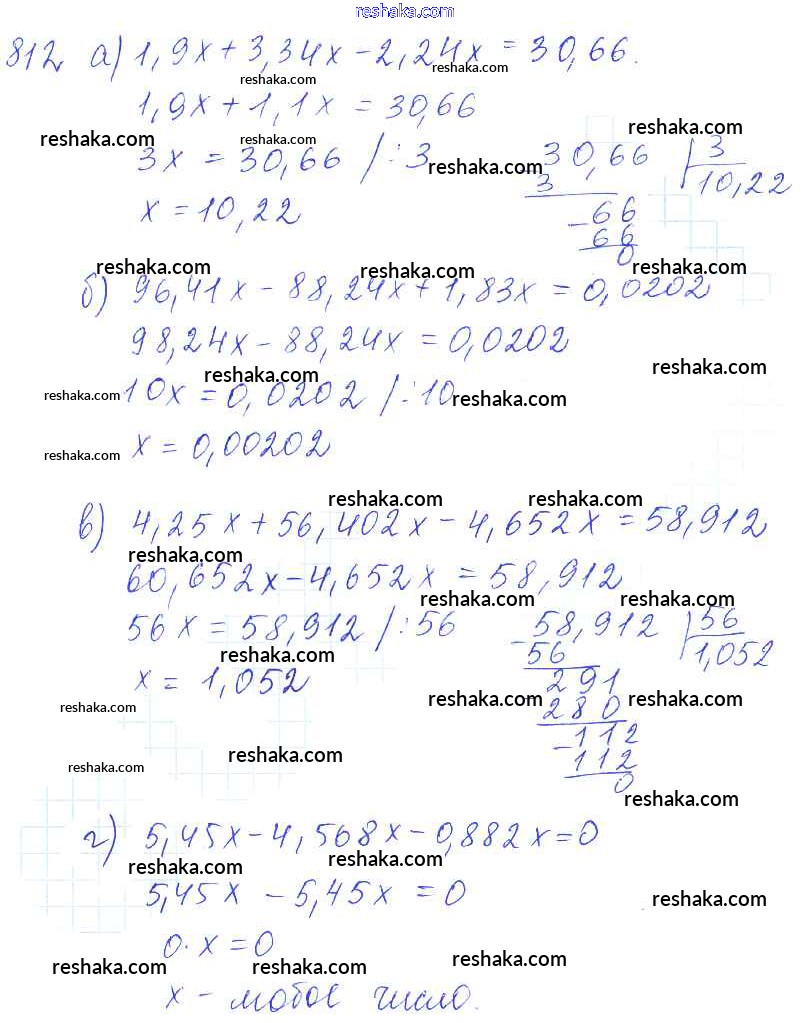 reshaka.com
812 а) 1,9x + 3,34x - 2,24x = 30,66.
reshaka.com reshaka.com
1,9x + 1,1x = 30,66
reshaka.com reshaka.com reshaka.com
3x = 30,66 /:3 30,66 3
reshaka.com
3 10,22
x = 10,22 - 66
66
0
reshaka.com reshaka.com reshaka.com
б) 96,41x - 88,24x + 1,83x = 0,0202
98,24x - 88,24x = 0,0202
reshaka.com reshaka.com
10x = 0,0202 /:10
reshaka.com reshaka.com
x = 0,00202
reshaka.com
reshaka.com reshaka.com
в) 4,25x + 56,402x - 4,652x = 58,912
reshaka.com
60,652x - 4,652x = 58,912
reshaka.com reshaka.com
56x = 58,912 /:56 58,912 56
reshaka.com
- 56 1,052
x = 1,052 291
reshaka.com reshaka.com reshaka.com
280
- 112
reshaka.com
112
reshaka.com
0
reshaka.com
г) 5,45x - 4,568x - 0,882x = 0
reshaka.com reshaka.com
5,45x - 5,45x = 0
reshaka.com
0·x = 0
reshaka.com reshaka.com reshaka.com
x - любое число.